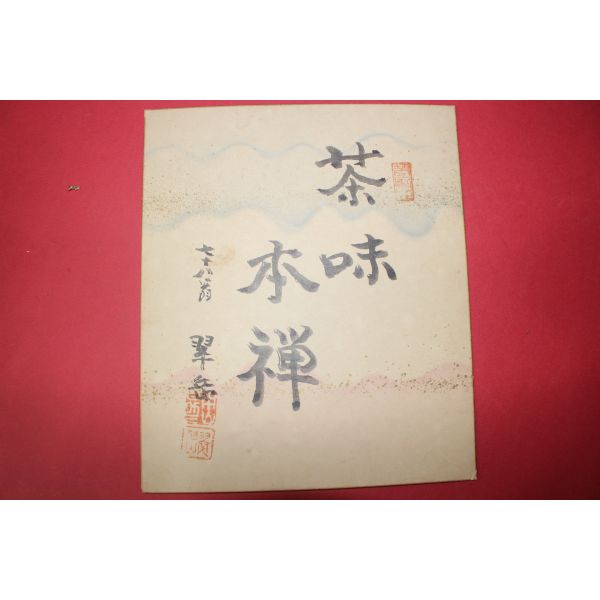 茶味
本禅
七十八翁 翠岳